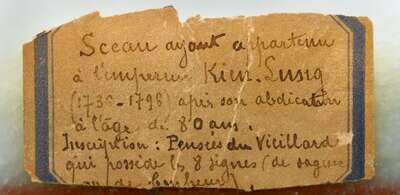 Sceau ayant appartenu
à l'empereur Kien-Lung
(1736-1796) après son abdication
à l'âge de 80 ans.
Inscription : Pensées du Vieillard
qui possède les 8 signes (de sagesse
ou de bonheur)